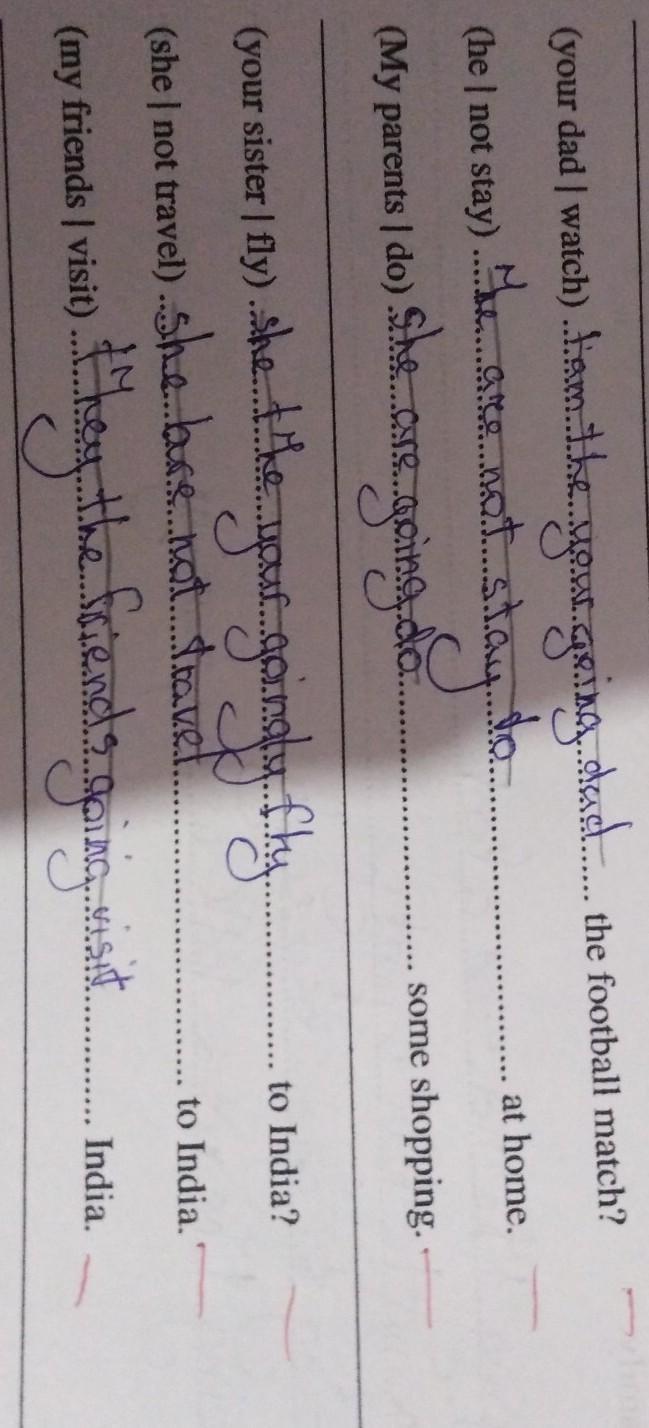 (your dad | watch) ..I am the your going dad...... the football match?
(he | not stay) .....He are not stay to................................ at home.
(My parents | do) .She are going do............................ some shopping.
(your sister | fly) ..she the your goingly fly.................... to India?
(she | not travel) ..She bare not travel................................ to India.
(my friends | visit) ....they the friends going visit.............. India.